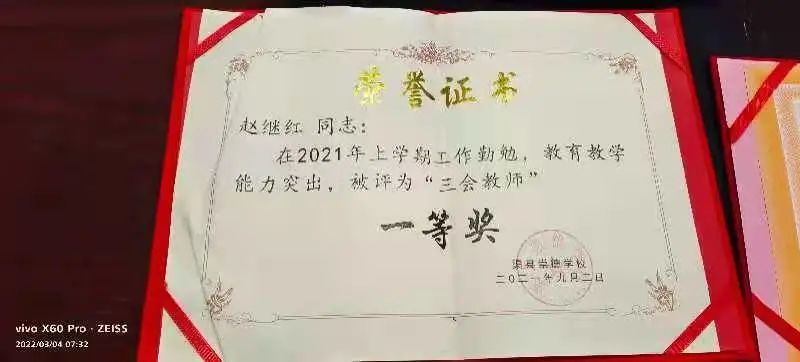 荣誉证书
赵继红 同志：
在2021年上学期工作勤勉，教育教学
能力突出，被评为“三会教师”
一等奖
渠县崇德学校
二〇二一年九月二日
vivo X60 Pro · ZEISS
2022/03/04 07:32